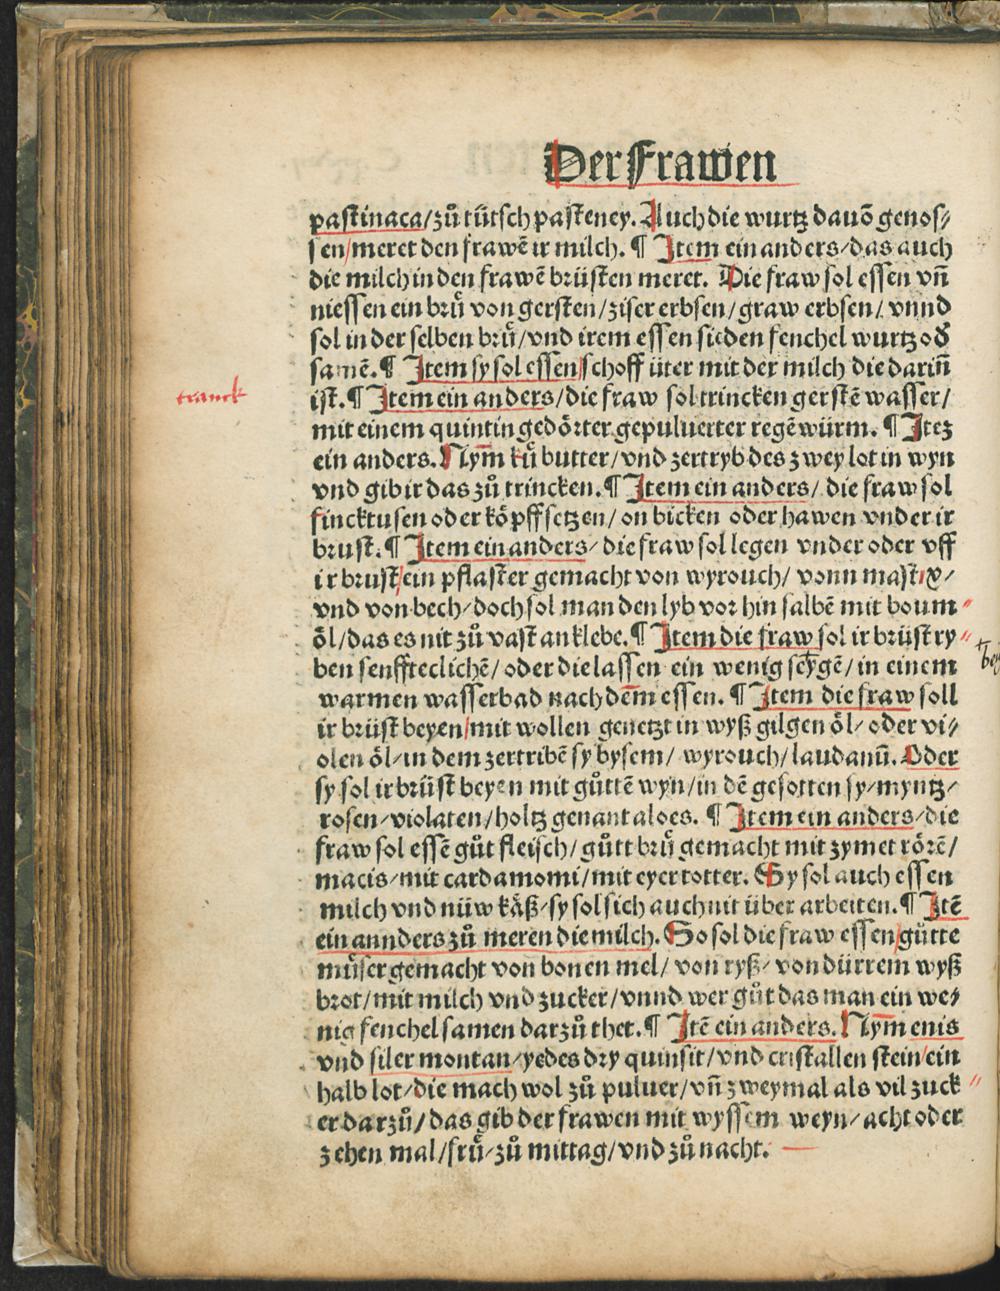 Der Frawen
pastinaca/zů tütsch pasteney. Auch die wurtz dauō genos⸗
sen/meret den frawē ir milch. ¶ Item ein anders/das auch
die milch in den frawē brüsten meret. Die fraw sol essen vñ
niessen ein brů von gersten/ziser erbsen/graw erbsen/vnnd
sol in der selben brů/vnd irem essen sieden fenchel wurtz od̕
samē.¶ Item sy sol essen schoff üter mit der milch die dariñ
ist.¶ Item ein anders/die fraw sol trincken gerstē wasser/
tranck
mit einem quintin gedörter gepuluerter regē würm. ¶ Itez
ein anders. Nym̄ ků butter/vnd zertryb des zwey lot in wyn
vnd gib ir das zů trincken.¶ Item ein anders/ die fraw sol
fincktusen oder köpff setzen/on bicken oder hawen vnder ir
brust.¶ Item ein anders/die fraw sol legen vnder oder vff
ir brust/ein pflaster gemacht von wyrouch/ vonn mastix/
vnd von bech/doch sol man den lyb vor hin salbē mit boum
öl/das es nit zů vast anklebe.¶ Item die fraw sol ir brüst ry
ben senfftecliche̅/oder die lassen ein wenig seygē/in einem
warmen wasserbad nach dem̄ essen. ¶ Item die fraw soll
ir brüst beyen/mit wollen genetzt in wyß gilgen öl/oder vi⸗
olen öl/in dem zertribē sy bysem/ wyrouch/laudanū. Oder
sy sol ir brüst beyen mit gůttē wyn/in dē gesotten sy/myntz/
rosen/violaten/holtz genant aloes. ¶ Item ein anders/die
fraw sol essē gůt fleisch/gůtt brů gemacht mit zymet rörē/
macis/mit cardamomi/mit eyer totter. Sy sol auch essen
milch vnd nüw käß/sy sol sich auch nit über arbeiten.¶ Itē
ein annders zů meren die milch. So sol die fraw essen/gůtte
můser gemacht von bonen mel/ von ryß/von dürrem wyß
brot/mit milch vnd zucker/vnnd wer gůt das man ein we⸗
nig fenchel samen darzů thet.¶ Itē ein anders. Nym̄ enis
vnd siler montan/yedes dry quinsit/vnd cristallen stein/ein
halb lot/die mach wol zů puluer/vñ zweymal als vil zuck
er darzů/das gib der frawen mit wyssem weyn/acht oder
zehen mal/frů/zů mittag/vnd zů nacht.